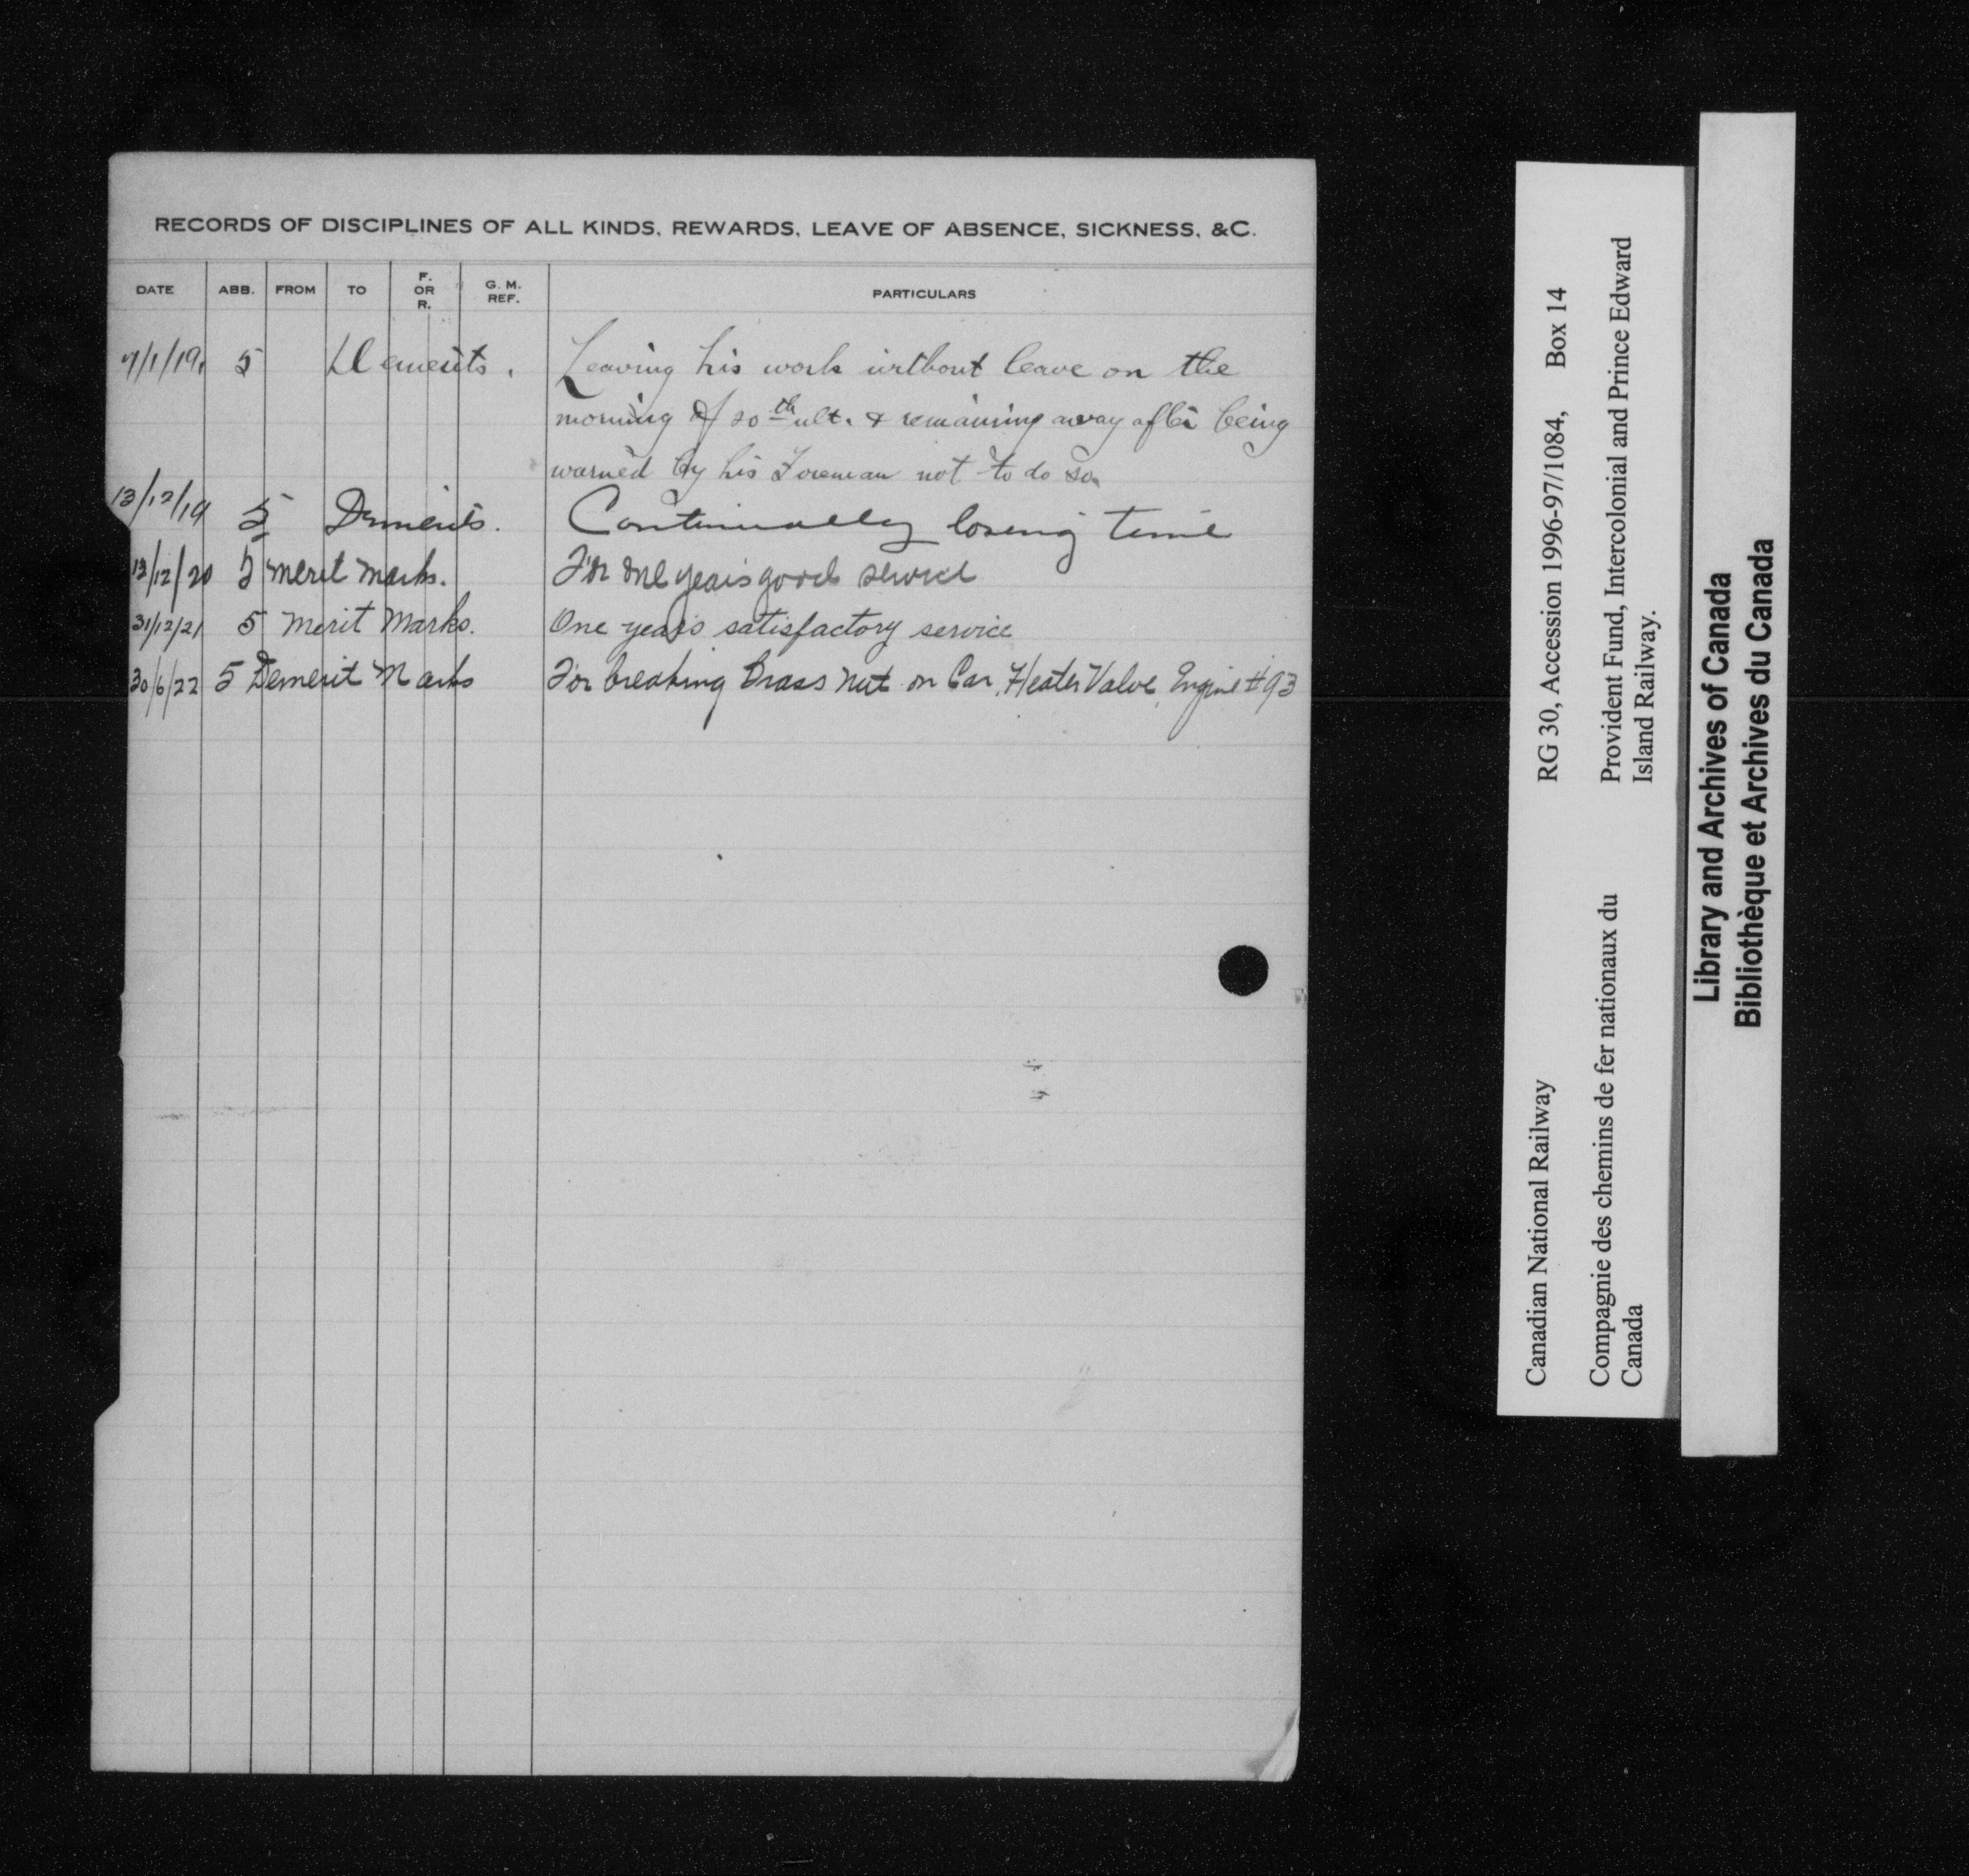 RECORDS OF DISCIPLINES OF ALL KINDS, REWARDS, LEAVE OF ABSENCE, SICKNESS, &C.
DATE ABB. FROM TO F. OR R. G. M. REF. PARTICULARS
7/1/19. 5 Demerits. Leaving his work without leave on the
morning of 20th ult. & remaining away after being
warned by his Foreman not to do so.
13/12/19 5 Demerits. Continually losing time
13/12/20 5 merit marks. For one years good service
31/12/21 5 Merit Marks. One year's satisfactory service
30/6/22 5 Demerit Marks For breaking Brass Nut on Car Heater Valve, Engine #93
Canadian National Railway RG 30, Accession 1996-97/1084, Box 14
Compagnie des chemins de fer nationaux du Provident Fund, Intercolonial and Prince Edward
Canada Island Railway.
Library and Archives of Canada
Bibliothèque et Archives du Canada